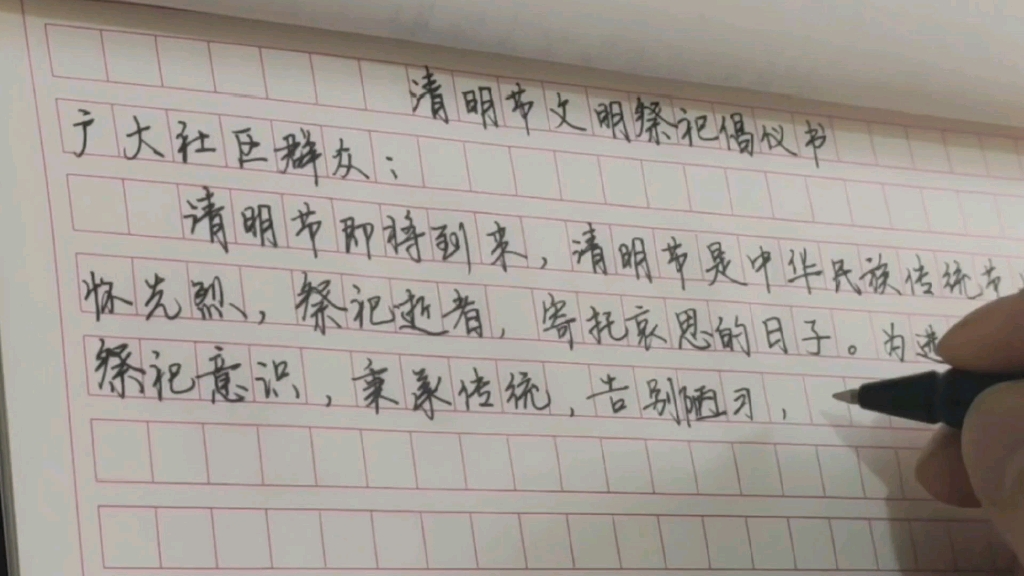 清明节文明祭祀倡仪书
广大社区群众：
清明节即将到来，清明节是中华民族传统节
怀先烈，祭祀逝者，寄托哀思的日子。为进
祭祀意识，秉承传统，告别陋习，